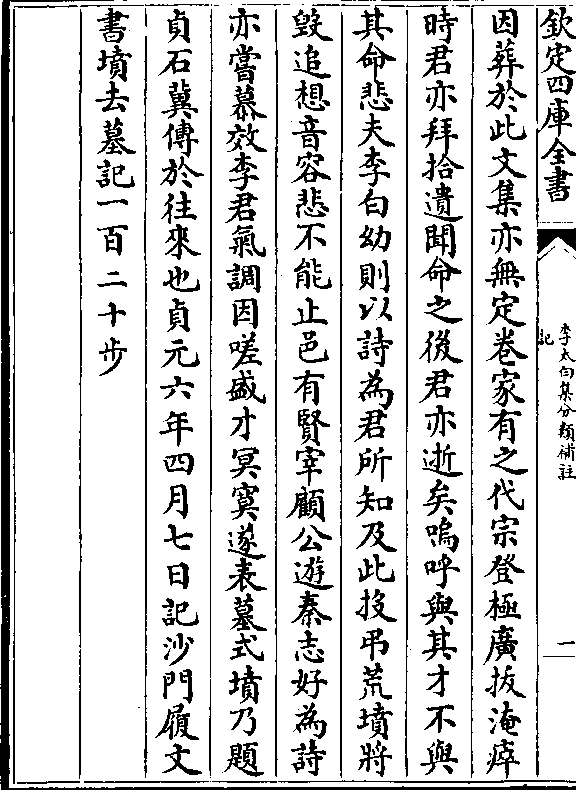 欽定四庫全書
李太白集分類補註
記
一
因葬於此文集亦無定卷家有之代宗登極廣拔淹瘁
時君亦拜拾遺聞命之後君亦逝矣嗚呼與其才不與
其命悲夫李白幼則以詩為君所知及此投弔荒墳將
毀追想音容悲不能止邑有賢宰顧公遊秦志好為詩
亦嘗慕效李君氣調因嗟盛才冥寞遂表墓式墳乃題
貞石冀傳於往來也貞元六年四月七日記沙門履文
書墳去墓記一百二十步